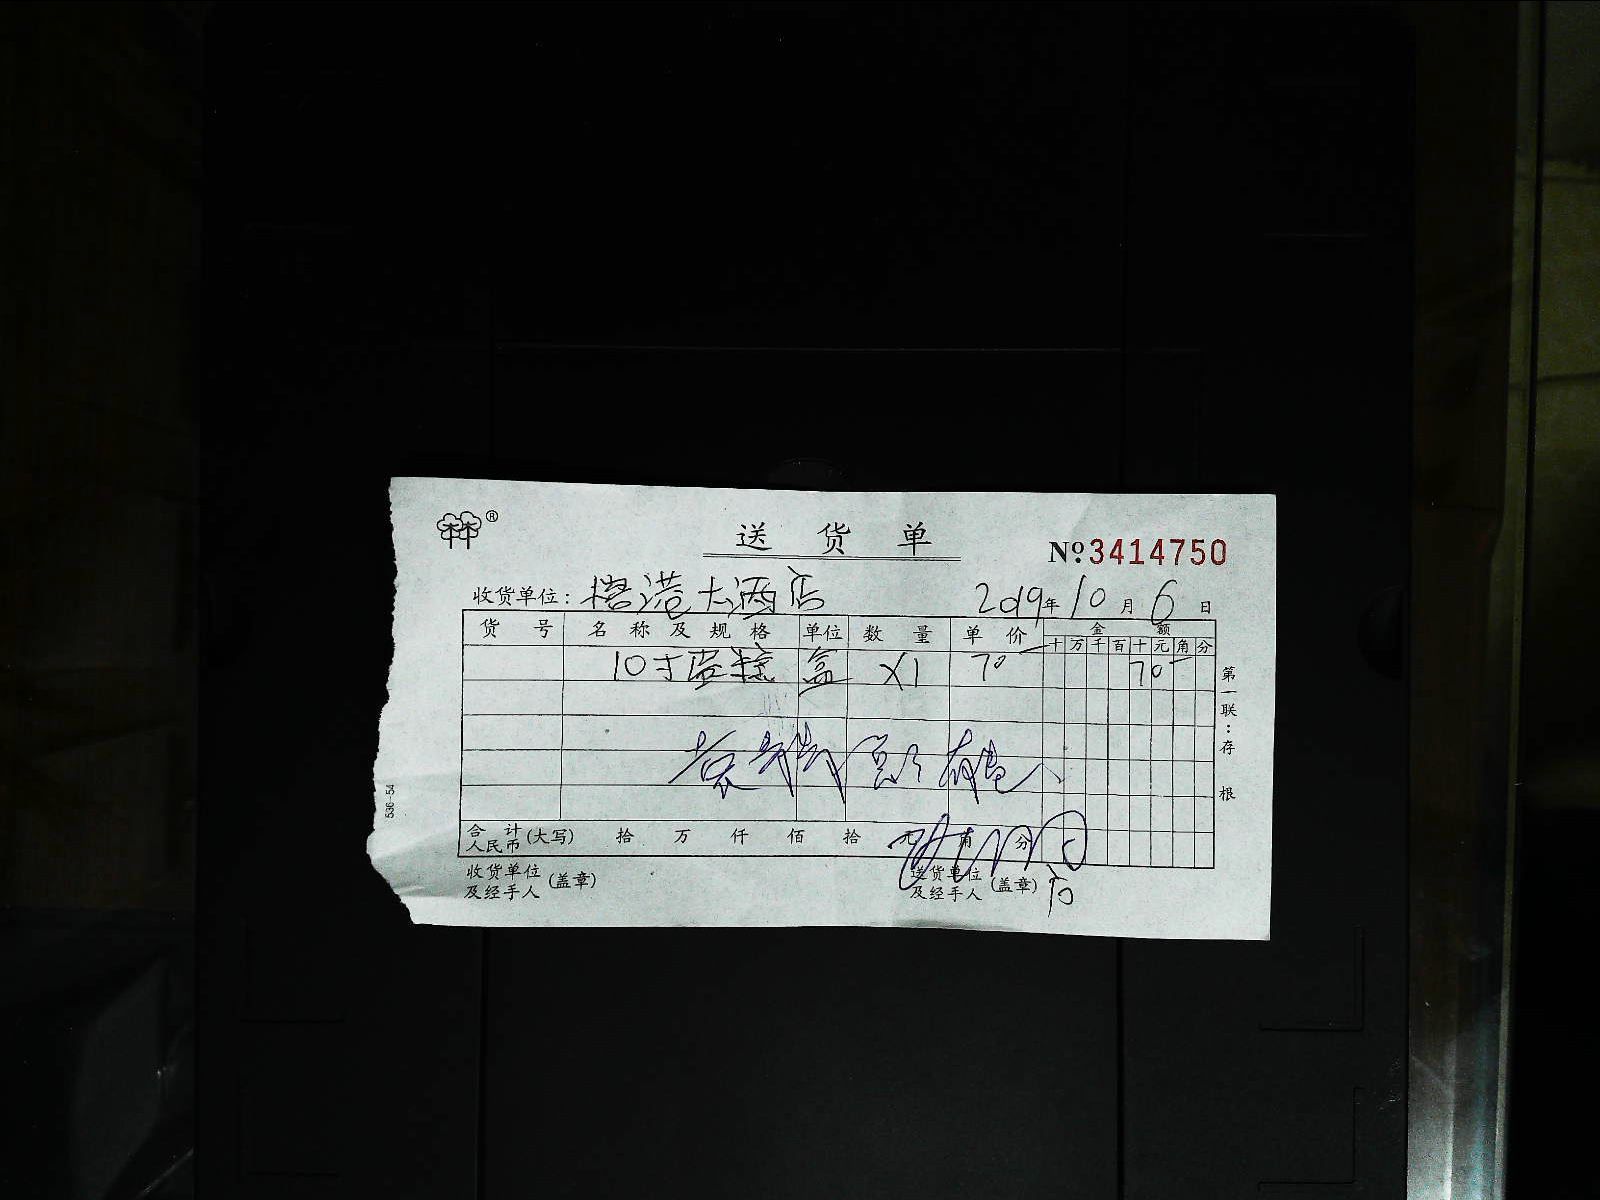 ®
送货单
№3414750
收货单位: 港大酒店 2019年10月6日
货号 名称及规格 单位 数量 单价 金额
十 万 千 百 十 元 角 分
10寸蛋糕 盒 X1 70 70
第一联:存根
536-54
合计人民币(大写) 拾 万 仟 佰 拾 元 角 分
收货单位及经手人(盖章) 送货单位及经手人(盖章)